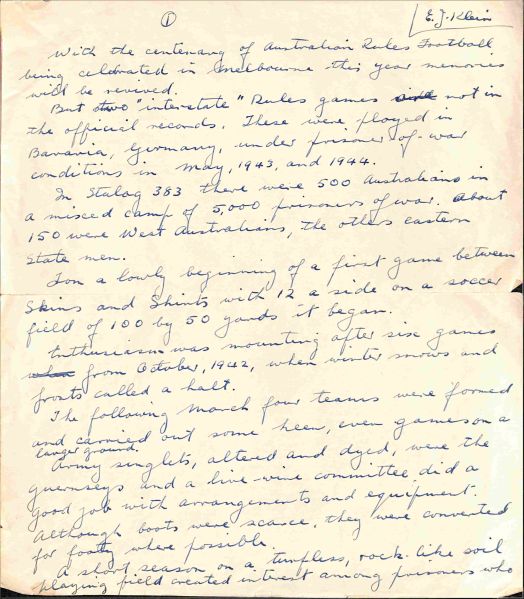 ①
E. J. Klein
With the centenary of Australian Rules Football
being celebrated in Melbourne this year memories
will be revived.
But two "interstate" Rules games not in
the official records. These were played in
Bavaria, Germany, under prisoner-of-war
conditions in May, 1943, and 1944.
In Stalag 383 there were 500 Australians in
a mixed camp of 5,000 prisoners of war. About
150 were West Australians, the others eastern
State men.
From a lowly beginning of a first game between
Skins and Shirts with 12 a side on a soccer
field of 100 by 50 yards it began.
Enthusiasm was mounting after six games
when from October, 1942, when winter snows and
frosts called a halt.
The following March four teams were formed
and carried out some keen, even games on a
larger ground.
Army singlets, altered and dyed, were the
guernseys and a live-wire committee did a
good job with arrangements and equipment.
Although boots were scarce, they were converted
for footy where possible.
A short season on a turfless, rock-like soil
playing field created interest among prisoners who